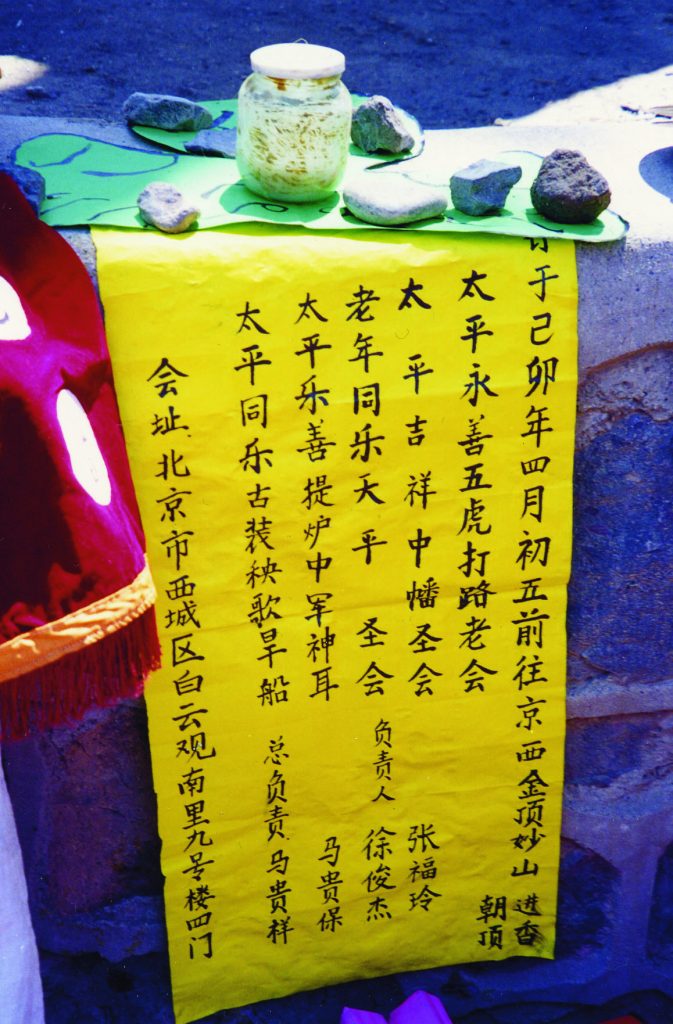 订于己卯年四月初五前往京西金顶妙山进香朝顶
太平永善五虎打路老会
太平吉祥中幡圣会 张福玲
老年同乐天平圣会 负责人 徐俊杰
太平乐善提炉中军神耳 马贵保
太平同乐古装秧歌旱船 总负责 马贵样
会址、北京市西城区白云观南里九号楼四门